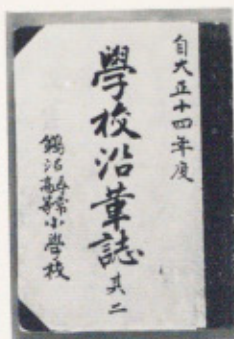 自大正十四年度
學校沿革誌 其二
鵠沼尋常高等小學校